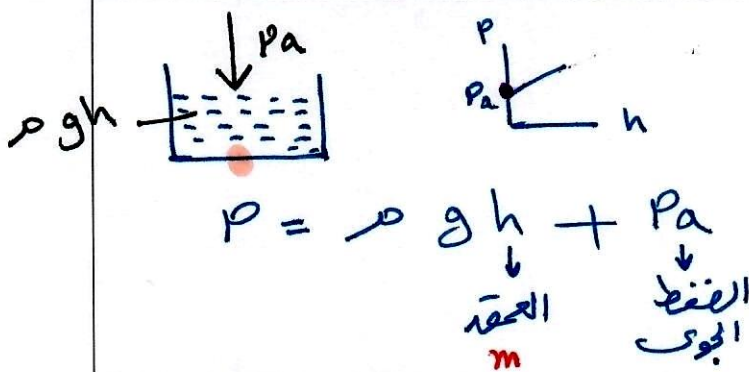 Pa
ρgh
P
Pa
h
P = ρ g h + Pa
↓ ↓
العمق الضغط
m الجوى